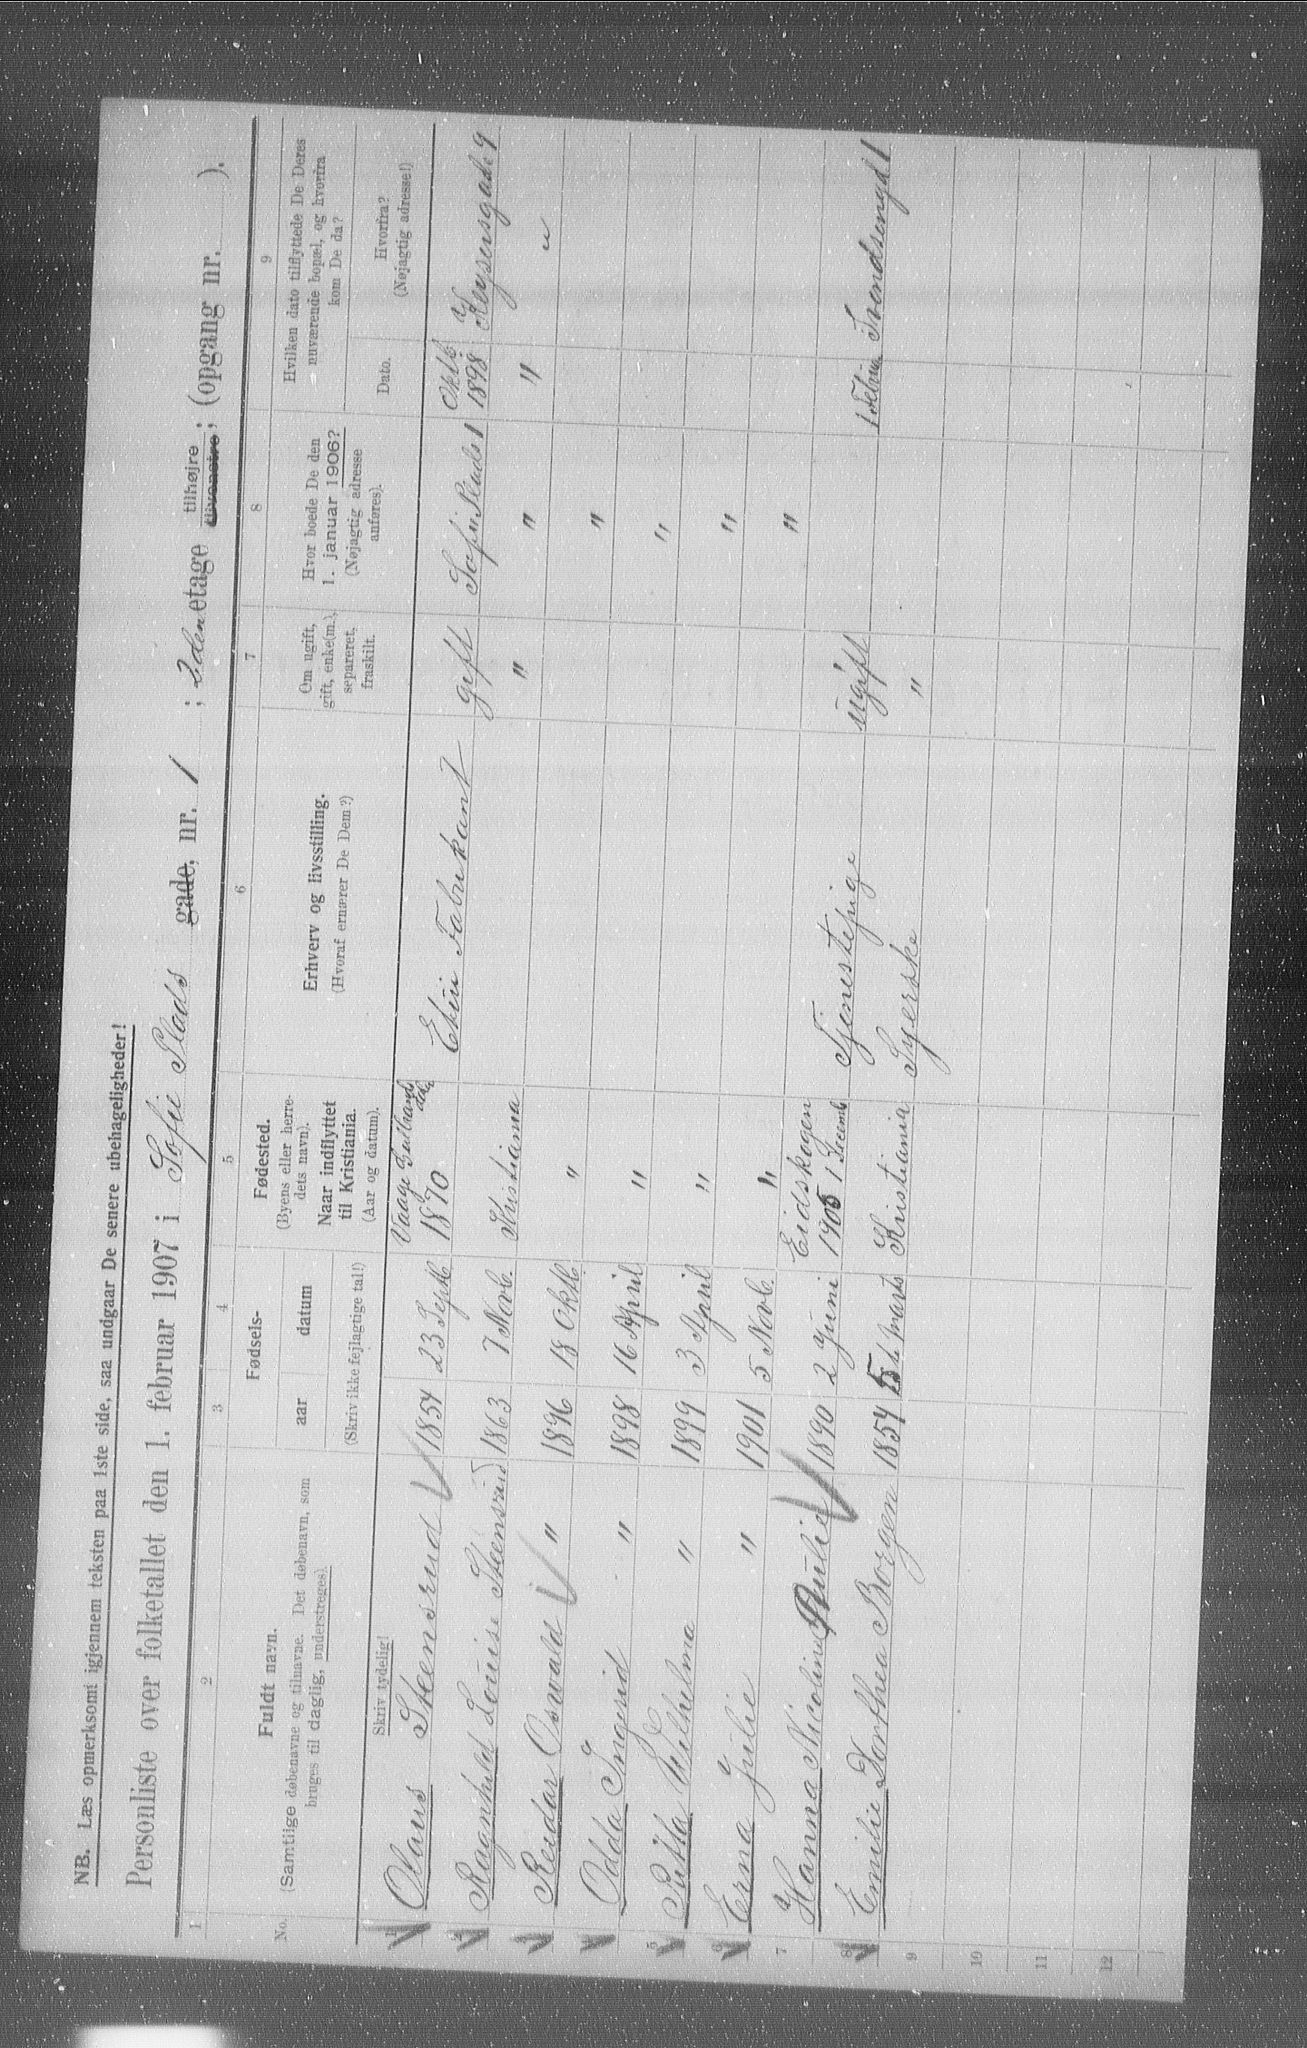 NB. Læs opmerksomt igjennem teksten paa 1ste side, saa undgaar De senere ubehageligheder!
Personliste over folketallet den 1. februar 1907 i Sofie Plads gade, nr. 1; 2den etage tilhøjre tilvenstre; (opgang nr. ).
1 2 3 4 5 6 7 8 9
No.
Fuldt navn.
(Samtlige døbenavne og tilnavne. Det døbenavn, som
bruges til daglig, understreges).
Skriv tydelig!
Fødsels-
aar datum
(Skriv ikke fejlagtige tal!)
Fødested.
(Byens eller herre-
dets navn).
Naar indflyttet
til Kristiania.
(Aar og datum).
Erhverv og livsstilling.
(Hvoraf ernærer De Dem?)
Om ugift,
gift, enke(m.),
separeret,
fraskilt.
Hvor boede De den
1. januar 1906?
(Nøjagtig adresse
anføres).
Hvilken dato tilflyttede De Deres
nuværende bopæl, og hvorfra
kom De da?
Dato.
Hvorfra?
(Nøjagtig adresse!)
1 Olaus Steensrud 1854 23 Septb Vaage Gulbrandsdal 1870 Etui Fabrikant gift Sofie Plads 1 Oktb 1898 Keysersgade 9
2 Ragnhild Louise Steensrud 1863 7 Novb. Kristiania " " " "
3 Reidar Oswald " 1896 18 Oktb. " "
4 Odda Ingrid " 1898 16 April " "
5 Wilhelma " 1899 3 April " "
6 Erna Julie " 1901 5 Novb. " "
7 Hanna Nicoline 1890 2 Juni Eidskogen 1905 1 Decemb Tjenestepige ugift
8 Emilie Dorthea Borgen 1854 Marts Kristiania Syerske "
9
10
11
12